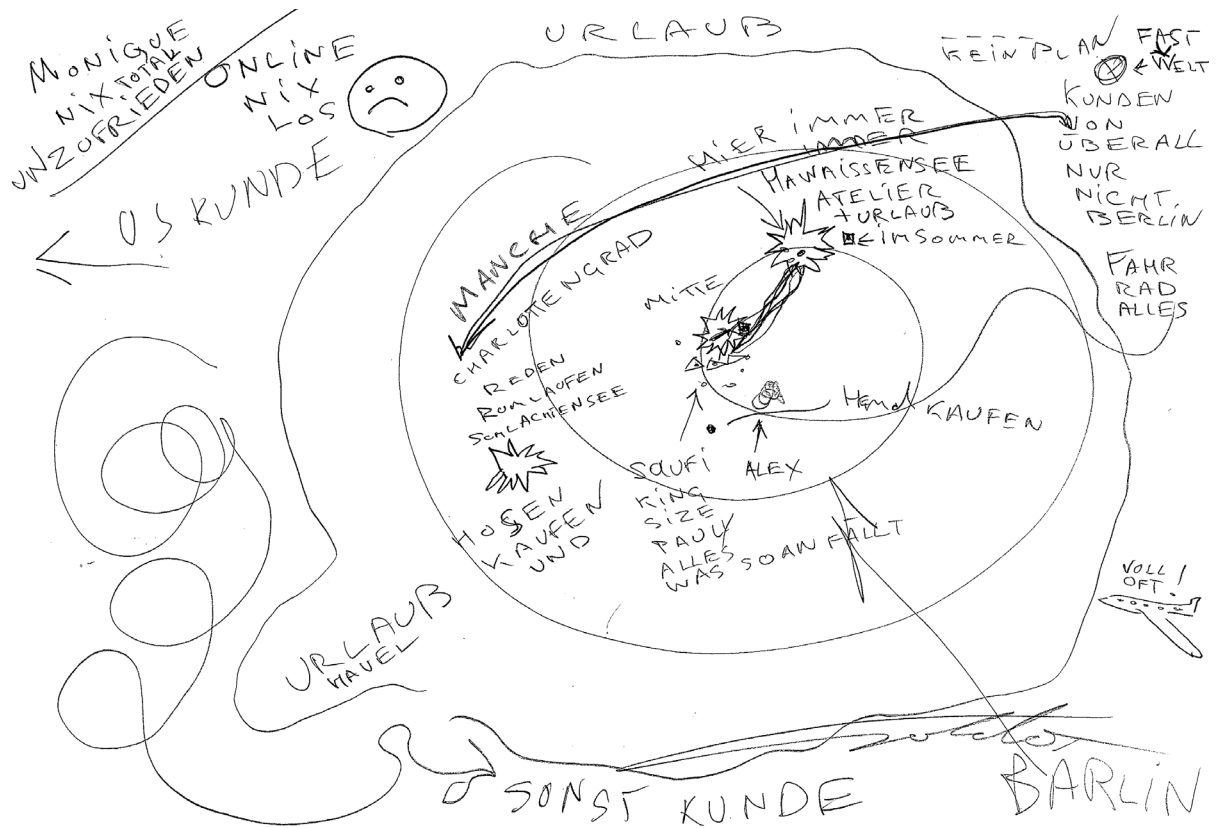 MONIQUE
NIX TOTAL
UNZOFRIEDEN
ONLINE
NIX
LOS
OS KUNDE
URLAUB
KEIN PLAN
FAST
WELT
KUNDEN
VON
ÜBERALL
NUR
NICHT
BERLIN
FAHR
RAD
ALLES
HIER IMMER
IMMER
HAWAISSENSEE
ATELIER
+URLAUB
IM SOMMER
MANCHE
CHARLOTENGRAD
REDEN
ROMLAUFEN
SCHLACHTENSEE
HOSEN
KAUFEN
UND
MITTE
Hemd KAUFEN
ALEX
SAUFI
KING
SIZE
PAUL
ALLES
WAS SO ANFÄLLT
VOLL
OFT!
URLAUB
HAVEL
SONST KUNDE
BARLIN